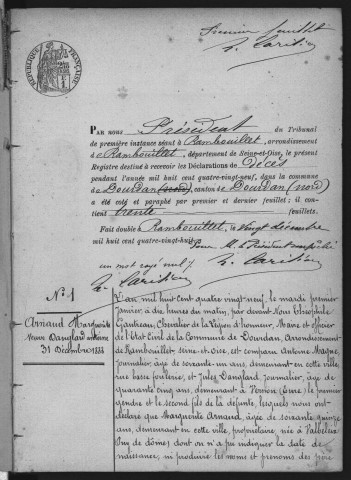 Premier feuillet
RÉPUBLIQUE FRANÇAISE
PAR nous Président du Tribunal
de première instance séant à Rambouillet, arrondissement
de Rambouillet, département de Seine-et-Oise, le présent
Registre destiné à recevoir les Déclarations de Décès
pendant l'année mil huit cent quatre-vingt-neuf, dans la commune
de Dourdan (nord), canton de Dourdan (nord)
a été coté et paraphé par premier et dernier feuillet; il con-
tient trente feuillets.
Fait double à Rambouillet, le vingt décembre
mil huit cent quatre-vingt-huit
Pour M. le Président empêché
un mot rayé nul
N° 1
Arnaud Marguerite
Veuve Danglard Antoine
31 Décembre 1888
L'an mil huit cent quatre vingt-neuf, le mardi premier
janvier, à dix heures du matin, par devant Nous Théophile
Gautreau, Chevalier de la Légion d'honneur, Maire et officier
de l'Etat Civil de la Commune de Dourdan, Arrondissement
de Rambouillet, Seine-et-oise, est comparu Antoine Magne,
journalier, âgé de soixante-un ans, demeurant en cette ville,
rue basse foulerie, et Jules Danglard, journalier, âgé de
quarante cinq ans, demeurant à (Eure) le premier
gendre et le second fils de la défunte, lesquels nous ont
déclaré que Marguerite Arnaud, âgée de soixante quinze
ans, demeurant en cette ville, propriétaire, née à
Puy de dôme) dont on n'a pu indiquer la date de
naissance, ni produire les noms et prénoms des père